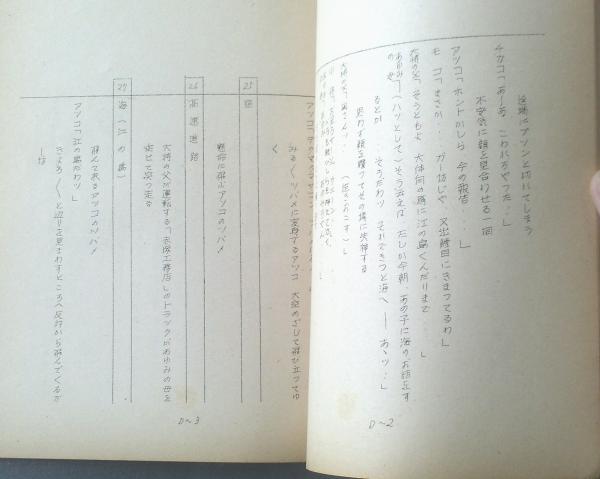 途端にプツンと切れてしまう
チカコ「あーあ こわれちゃった‥」
不安気に顔を見合わせる一同
アツコ「ホントかしら 今の報告‥」
モコ「まさか‥‥ガー坊じゃ 又出鱈目にきまってるわ」
大将の父「そうともよ 大体何の為に江の島くんだりまで‥‥」
あゆみの母「（ハッとして）そう云えば たしか今朝、あの子に海のお話を
るとか‥‥そうだわッ それできっと海へ── あゝッ‥」
思わず顔を覆ってその場に失神する
大将の父「奥さん‥‥（抱きおこす）」
D〜2
みる〳〵ツバメに変身するアツコ 大空めざして飛び立ってゆ
く
25 空
懸命に飛ぶアツコのツバメ
26 高速道路
大将の父が運転する「工務店」のトラックがあゆみの母を
乗せて突っ走る
27 海（江の島）
飛んで来るアツコのツバメ
アツコ「江の島だわッ」
きょろ〳〵と辺りを見まわすところへ反対から飛んでくるガ
ー坊
D〜3